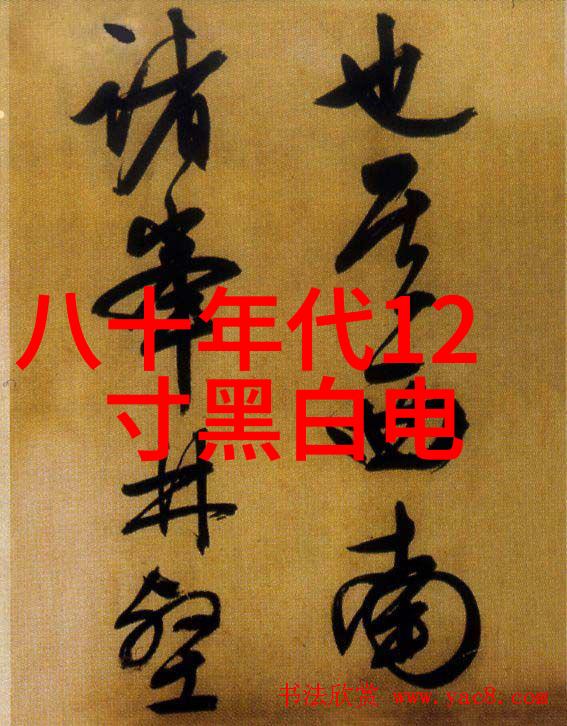 也其西南
诸峰林壑
八十年代12
寸黑白电
书法欣赏 www.yac8.com